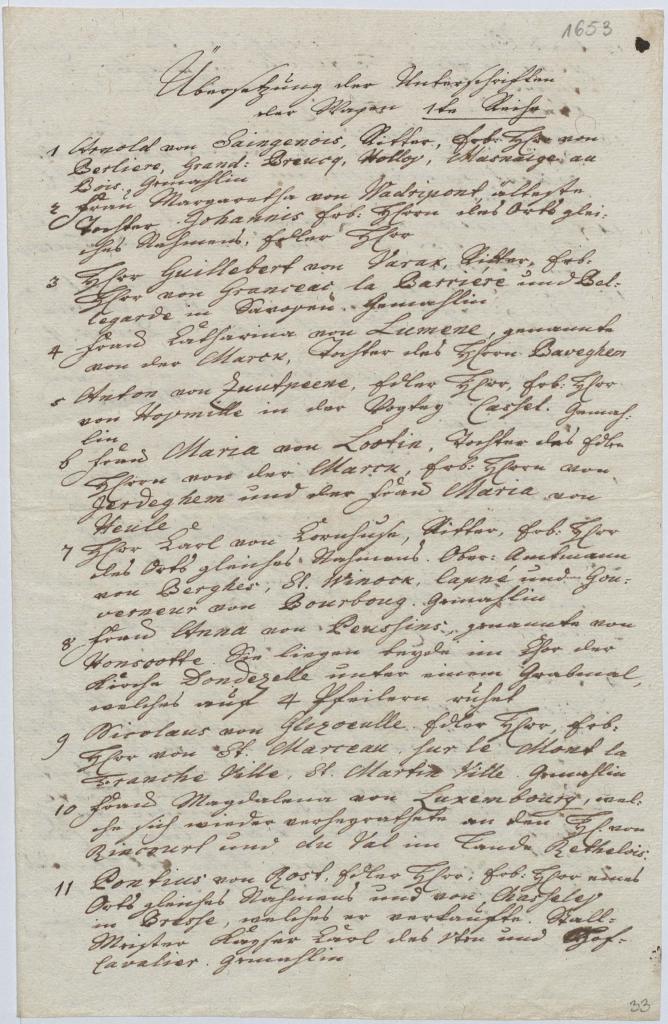 1653
Übersetzung der Unterschriften
der Wapen 1te Reihe
1 Arnold von Saingenois, Ritter, Erb: Hhr von
Berliere, Grand: Breucq, Holloy, au
Bois. Gemahlin
2 Frau Margaretha von Wadripont, älteste
Tochter Johannis Erb: Hhrrn des Orts glei-
ches Nahmens, Edler Hhrr
3 Hhrr Guillebert von Varax, Ritter, Erb:
Hhrr von Granceac la Barriére und Bel-
legarde in Savoyen. Gemahlin
4 Frau Catharina von Lumene, genannte
von der Marck, Tochter des Hhrrn Baveghem
5 Anton von Zuutpeene, Edler Hhrr, Erb: Hhrr
von Hopmille in der Vogtey Cassel. Gemah-
lin
6 Frau Maria von Lootin, Tochter des Edlen
Hhrrn von der Marck, Erb: Hhrrn von
Jerdeghem und der Frau Maria von
Heule
7 Hhrr Carl von Cornhuse, Ritter, Erb: Hhrr
des Orts gleiches Nahmens. Ober: Amtmann
von Berghes, St. Wnock, und Gou-
verneur von Bourboug. Gemahlin
8 Frau Anna von Penssins, genannte von
Honscotte. Sie liegen beyde im Chor der
Kirche Dondezelle unter einem Grabmal,
welches auf 4 Pfeilern ruhet
9 Nicolaus von Edler Hhrr, Erb:
Hhrr von St. Marceau sur le Mont la
Franche Ville, St. Martin Ville. Gemahlin
10 Frau Magdalena von Luxembourg, wel-
che sich wieder verheyrathete an den Hh. von
Riecourt und du Val im Lande Rethelois.
11 Pontius von Rost, Edler Hhrr, Erb: Hhrr eines
Orts gleiches Nahmens und von Chasseley
in Bresse, welches er verkaufte. Stall-
Meister Kayser Carl des Vten und Hof-
Cavalier. Gemahlin
33